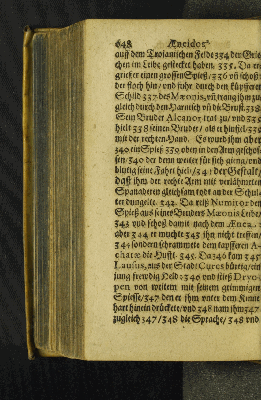 648 Æneidos
auff dem Trojanischen Felde 334 der Grie
chen im Leibe gestecket haben. 335. Da er
griffe er einen grossen Spieß/ 336 uñ schoß
der floch hin/ und fuhr durch den küpffern
Schild 337 des Mæonis, uñ drang ihm zu
gleich durch den Harnisch iñ die Brust. 338
Sein Bruder Alcanor trat zu/ und 339
hielt 338 seinen Bruder/ als er hinfiel/ 339
mit der rechten Hand. Es ward ihm aber
340 ein Spieß 339 oben in den Arm geschos
sen/ 340 der denn weiter für sich gieng/ und
blutig seine Fahrt hielt/ 341 der Gestalt/
daß ihm der rechte Arm mit verlähmeten
Spanadern gleichsam todt an der Schul
ter dungelte. 342. Da reiß Numitor den
Spieß aus seines Bruders Mæonis Leibe/
343 und schoß damit nach dem Ænea:
aber 344 er mochte 343 ihn nicht treffen/
344 sondern schrammete dem tapfferen A-
chatæ die Hufft. 345. Da 346 kam 345
Lausus, aus der Stadt Cures bürtig/ ein
jung frewdig Held: 346 und stieß Dryo-
pen von weitem mit seinem grimmigen
Spiesse/ 347 den er ihm unter dem Kinne
hart hinein drückete/ und 348 nam ihm 347
zugleich 347/348 die Sprache/ 348 und